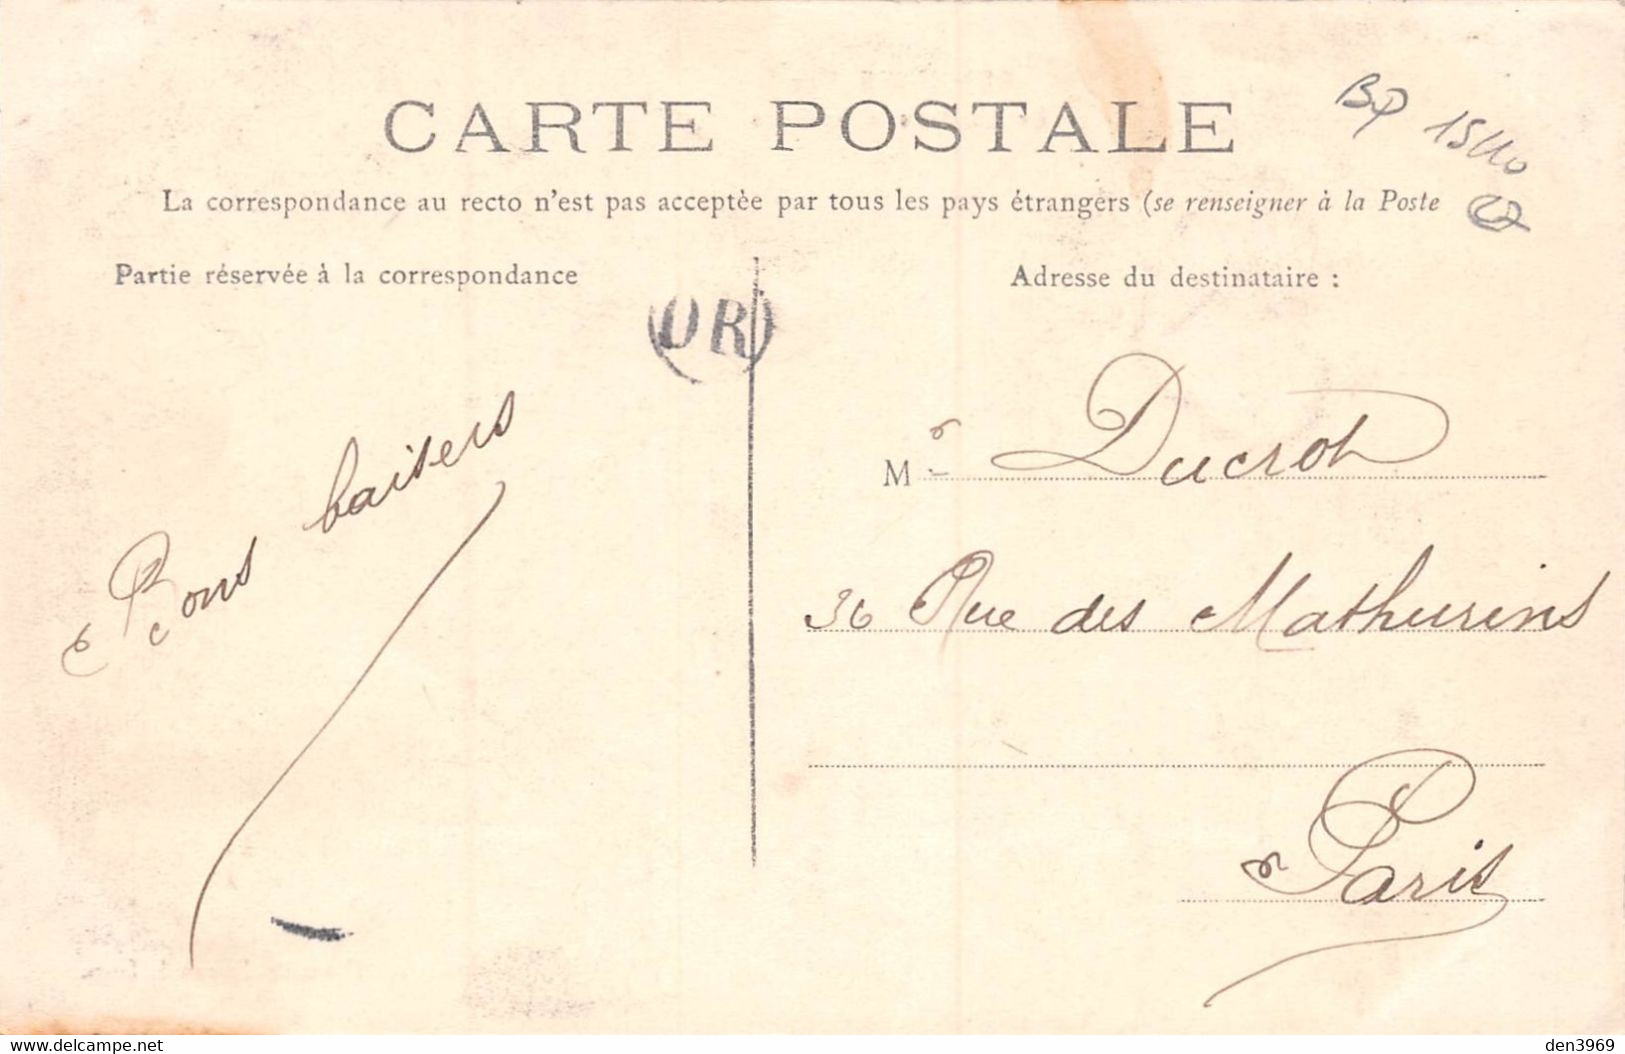 CARTE POSTALE
La correspondance au recto n'est pas acceptèe par tous les pays étrangers (se renseigner à la Poste
Partie réservée à la correspondance
Adresse du destinataire :
OR
Bons baisers
Mr Ducrot
36 Rue des Mathurins
Paris
delcampe.net
den3969